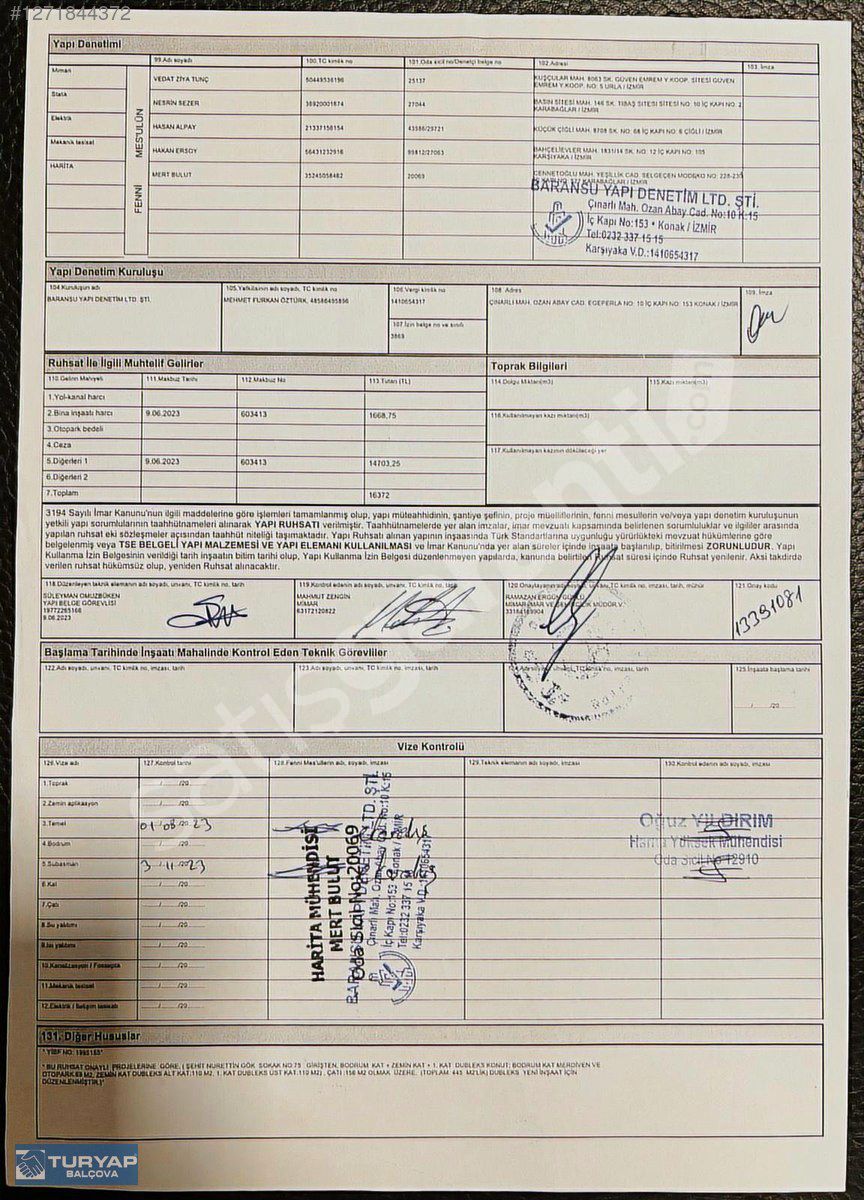 #1271844372
Yapı Denetimi
99.Adı soyadı 100.TC kimlik no 101.Oda sicil no/Denetçi belge no 102.Adresi 103. İmza
FENNİ MES'ULÜN
Mimari VEDAT ZİYA TUNÇ 50449536196 25137 KUŞÇULAR MAH. 8063 SK. GÜVEN EMREM Y.KOOP. SİTESİ GÜVEN
EMREM Y.KOOP. NO: 5 URLA / İZMİR
Statik NESRİN SEZER 38920001874 27044 BASIN SİTESİ MAH. 146 SK. TIBAŞ SİTESİ SİTESİ NO: 10 İÇ KAPI NO: 2
KARABAĞLAR / İZMİR
Elektrik HASAN ALPAY 21337150154 43586/29721 KÜÇÜK ÇİĞLİ MAH. 8708 SK. NO: 68 İÇ KAPI NO: 6 ÇİĞLİ / İZMİR
Mekanik tesisat HAKAN ERSOY 56431232916 99812/27063 BAHÇELİEVLER MAH. 1831/14 SK. NO: 12 İÇ KAPI NO: 105
KARŞIYAKA / İZMİR
HARİTA MERT BULUT 35245058482 20069 CENNETOĞLU MAH. YEŞİLLİK CAD. SELGEÇEN MODEKO NO: 228-230
BARANSU YAPI DENETİM LTD. ŞTİ.
Çınarlı Mah. Ozan Abay Cad. No:10 K:15
İç Kapı No:153 • Konak / İZMİR
Tel:0232 337 15 15
Karşıyaka V.D.:1410654317
Yapı Denetim Kuruluşu
104.Kuruluşun adı 105.Yetkilisinin adı soyadı, TC kimlik no 106.Vergi kimlik no 108. Adres 109. İmza
BARANSU YAPI DENETİM LTD. ŞTİ. MEHMET FURKAN ÖZTÜRK, 48586495896 1410654317 ÇINARLI MAH. OZAN ABAY CAD. EGEPERLA NO: 10 İÇ KAPI NO: 153 KONAK / İZMİR
107.İzin belge no ve sınıfı
3869
Ruhsat İle İlgili Muhtelif Gelirler
Toprak Bilgileri
110.Gelirin Mahiyeti 111.Makbuz Tarihi 112.Makbuz No 113.Tutarı (TL) 114.Dolgu Miktarı(m3) 115.Kazı miktarı(m3)
1.Yol-kanal harcı
2.Bina inşaatı harcı 9.06.2023 603413 1668,75
116.Kullanılmayan kazı miktarı(m3)
3.Otopark bedeli
4.Ceza
117.Kullanılmayan kazının döküleceği yer
5.Diğerleri 1 9.06.2023 603413 14703,25
6.Diğerleri 2
7.Toplam 16372
3194 Sayılı İmar Kanunu'nun ilgili maddelerine göre işlemleri tamamlanmış olup, yapı müteahhidinin, şantiye şefinin, proje müelliflerinin, fenni mesullerin ve/veya yapı denetim kuruluşunun
yetkili yapı sorumlularının taahhütnameleri alınarak YAPI RUHSATI verilmiştir. Taahhütnamelerde yer alan imzalar, imar mevzuatı kapsamında belirlenen sorumluluklar ve ilgililer arasında
yapılan ruhsat eki sözleşmeler açısından taahhüt niteliği taşımaktadır. Yapı Ruhsatı alınan yapının inşaasında Türk Standartlarına uygunluğu yürürlükteki mevzuat hükümlerine göre
belgelenmiş veya TSE BELGELİ YAPI MALZEMESİ VE YAPI ELEMANI KULLANILMASI ve İmar Kanunu'nda yer alan süreler içinde inşaata başlanılıp, bitirilmesi ZORUNLUDUR. Yapı
Kullanma İzin Belgesinin verildiği tarih inşaatın bitim tarihi olup, Yapı Kullanma İzin Belgesi düzenlenmeyen yapılarda, kanunda belirtilen Ruhsat süresi içinde Ruhsat yenilenir. Aksi takdirde
verilen ruhsat hükümsüz olup, yeniden Ruhsat alınacaktır.
118.Düzenleyen teknik elemanın adı soyadı, unvanı, TC kimlik no, imzası, tarih 119.Kontrol edenin adı soyadı, unvanı, TC kimlik no, imzası, tarih 120.Onaylayanın adı soyadı, unvanı, TC kimlik no, imzası, tarih, mühür 121.Onay kodu
SÜLEYMAN OMUZBÜKEN MAHMUT ZENGİN RAMAZAN ERGÜN
YAPI BELGE GÖREVLİSİ MİMAR
19772265166 63172120822 33184169904
9.06.2023 13391081
Başlama Tarihinde İnşaatı Mahalinde Kontrol Eden Teknik Görevliler
122.Adı soyadı, unvanı, TC kimlik no, imzası, tarih 123.Adı soyadı, unvanı, TC kimlik no, imzası, tarih 124.Adı soyadı, unvanı, TC kimlik no, imzası, tarih 125.İnşaata başlama tarihi
/ /20
Vize Kontrolü
126.Vize adı 127.Kontrol tarihi 128.Fenni Mes'ullerin adı, soyadı, imzası 129.Teknik elemanın adı soyadı, imzası 130.Kontrol edenin adı soyadı, imzası
1.Toprak / /20
2.Zemin aplikasyon / /20
3.Temel 01 08 23
4.Bodrum / /20
5.Subasman 3 11 23
6.Kat / /20
7.Çatı / /20
8.Su yalıtımı / /20
9.Isı yalıtımı / /20
10.Kanalizasyon / Fosseptik / /20
11.Mekanik tesisat / /20
12.Elektrik / İletişim tesisatı / /20
HARİTA MÜHENDİSİ
MERT BULUT
Oda Sicil No:20069
BARANSU YAPI DENETİM LTD. ŞTİ.
Çınarlı Mah. Ozan Abay Cad. No:10 K:15
İç Kapı No:153 • Konak / İZMİR
Tel:0232 337 15 15
Karşıyaka V.D.:1410654317
Oğuz YILDIRIM
Harita Yüksek Mühendisi
Oda Sicil No 12910
131. Diğer Hususlar
* YİBF NO: 1995165*
* BU RUHSAT ONAYLI PROJELERİNE GÖRE, ( ŞEHİT NURETTİN GÖK SOKAK NO:75 GİRİŞTEN, BODRUM KAT + ZEMİN KAT + 1. KAT DUBLEKS KONUT; BODRUM KAT MERDİVEN VE
OTOPARK:69 M2, ZEMİN KAT DUBLEKS ALT KAT:110 M2, 1. KAT DUBLEKS ÜST KAT:110 M2) , ÇATI :156 M2 OLMAK ÜZERE, (TOPLAM: 445 M2'LİK) DUBLEKS YENİ İNŞAAT İÇİN
DÜZENLENMİŞTİR.)*
TURYAP
BALÇOVA